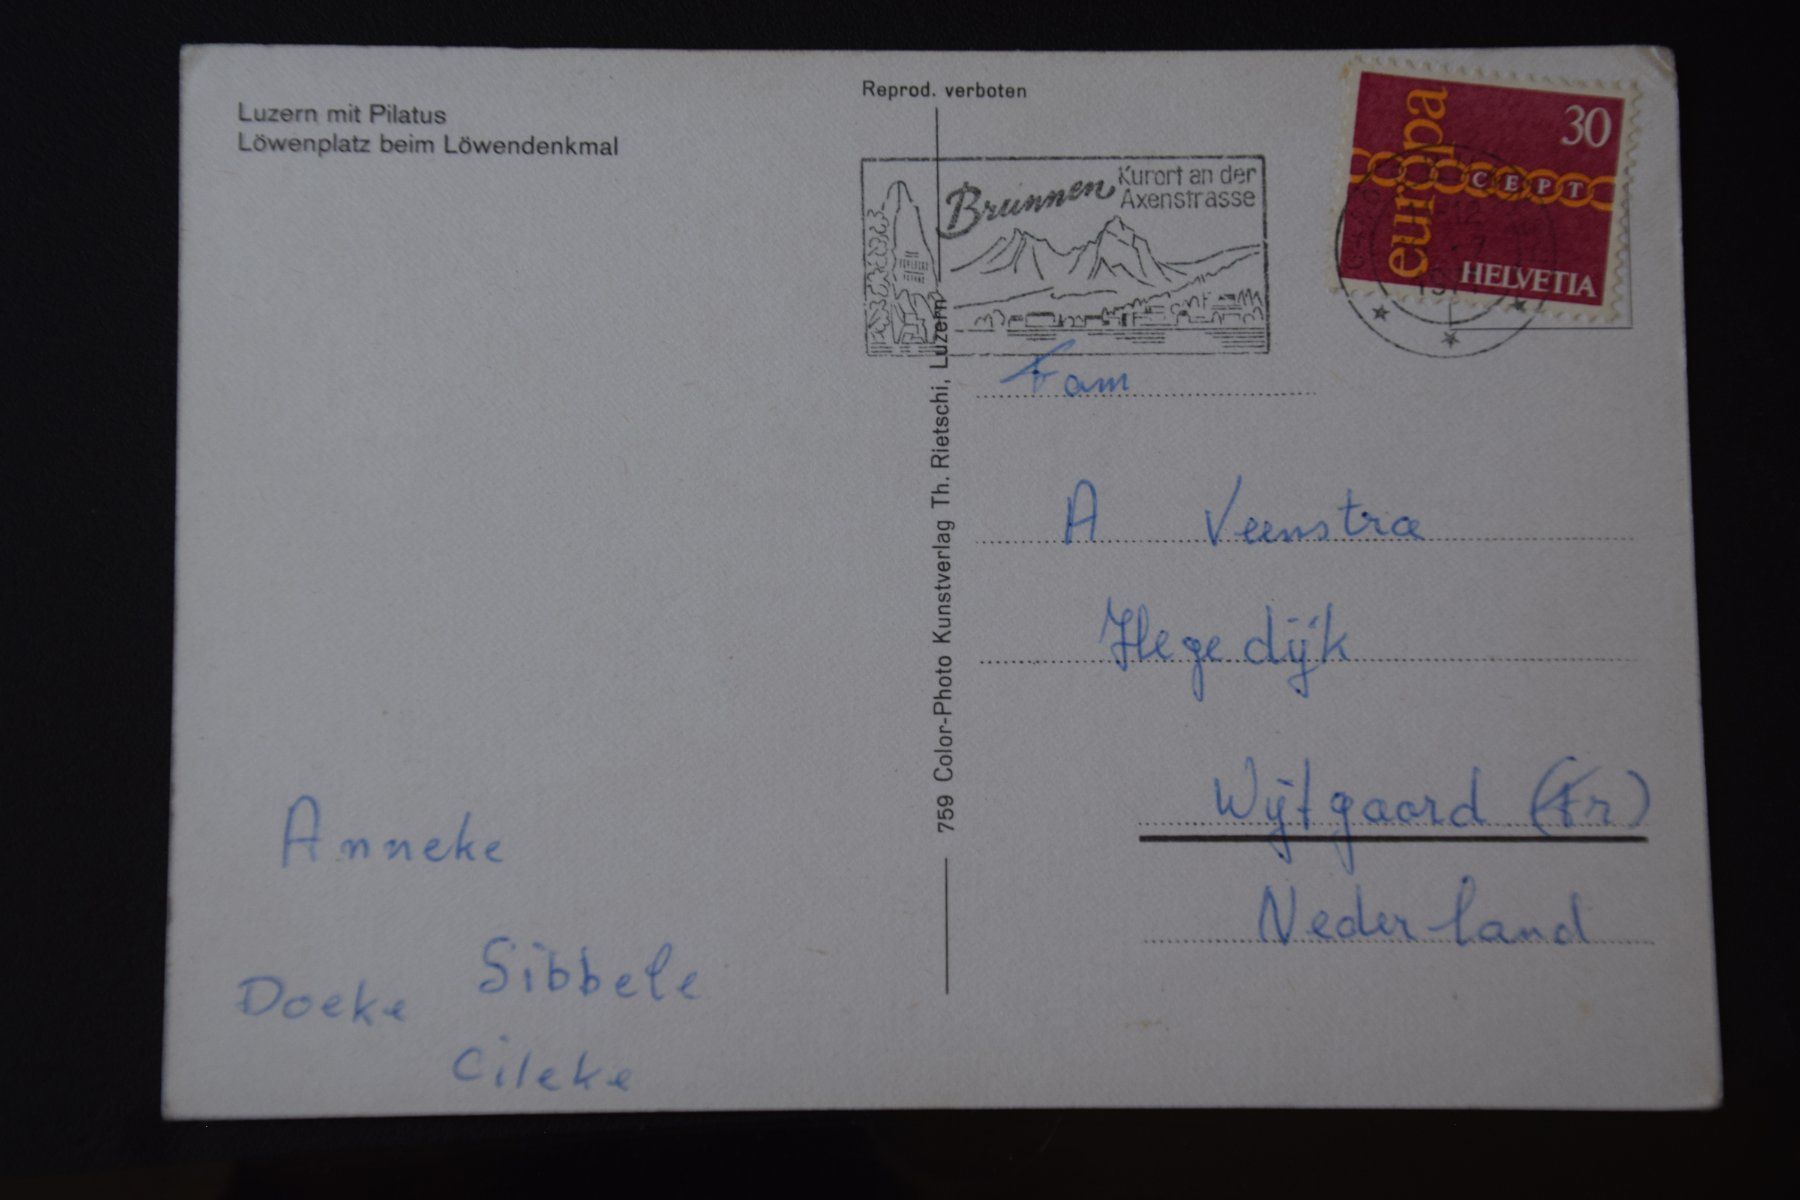 Luzern mit Pilatus
Löwenplatz beim Löwendenkmal
Reprod. verboten
Brunnen
Kurort an der
Axenstrasse
europa
30
CEPT
HELVETIA
759 Color-Photo Kunstverlag Th. Rietschi, Luzern
Fam
A Veenstra
Hegedijk
Wijtgaard (Fr)
Nederland
Anneke
Sibbele
Doeke
Cileke